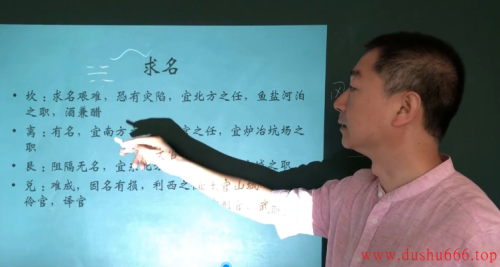 求名
• 坎：求名艰难，恐有灾陷，宜北方之任，鱼盐河泊
之职，酒兼醋
• 离：有名，宜南方 之任，宜炉冶坑场之
职
• 艮：阻隔无名，宜东北 之职
• 兑：难成，因名有损，利西之
伶官，译官
www.dushu666.top